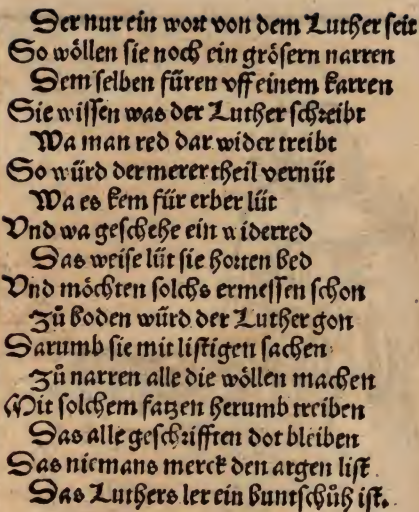 Der nur ein wort von dem Luther seit
So wöllen sie noch ein grösern narren
Dem selben füren vff einem karren
Sie wissen was der Luther schreibt
Wa man red dar wider treibt
So würd der merer theil vernüt
Wa es kem für erber lüt
Vnd wa geschehe ein widerred
Das weise lüt sie horten bed
Vnd möchten solchs ermessen schon
Zů boden würd der Luther gon
Darumb sie mit listigen sachen
Zů narren alle die wöllen machen
Mit solchem fatzen herumb treiben
Das alle geschrifften dot bleiben
Das niemans merck den argen list
Das Luthers ler ein buntschůh ist.